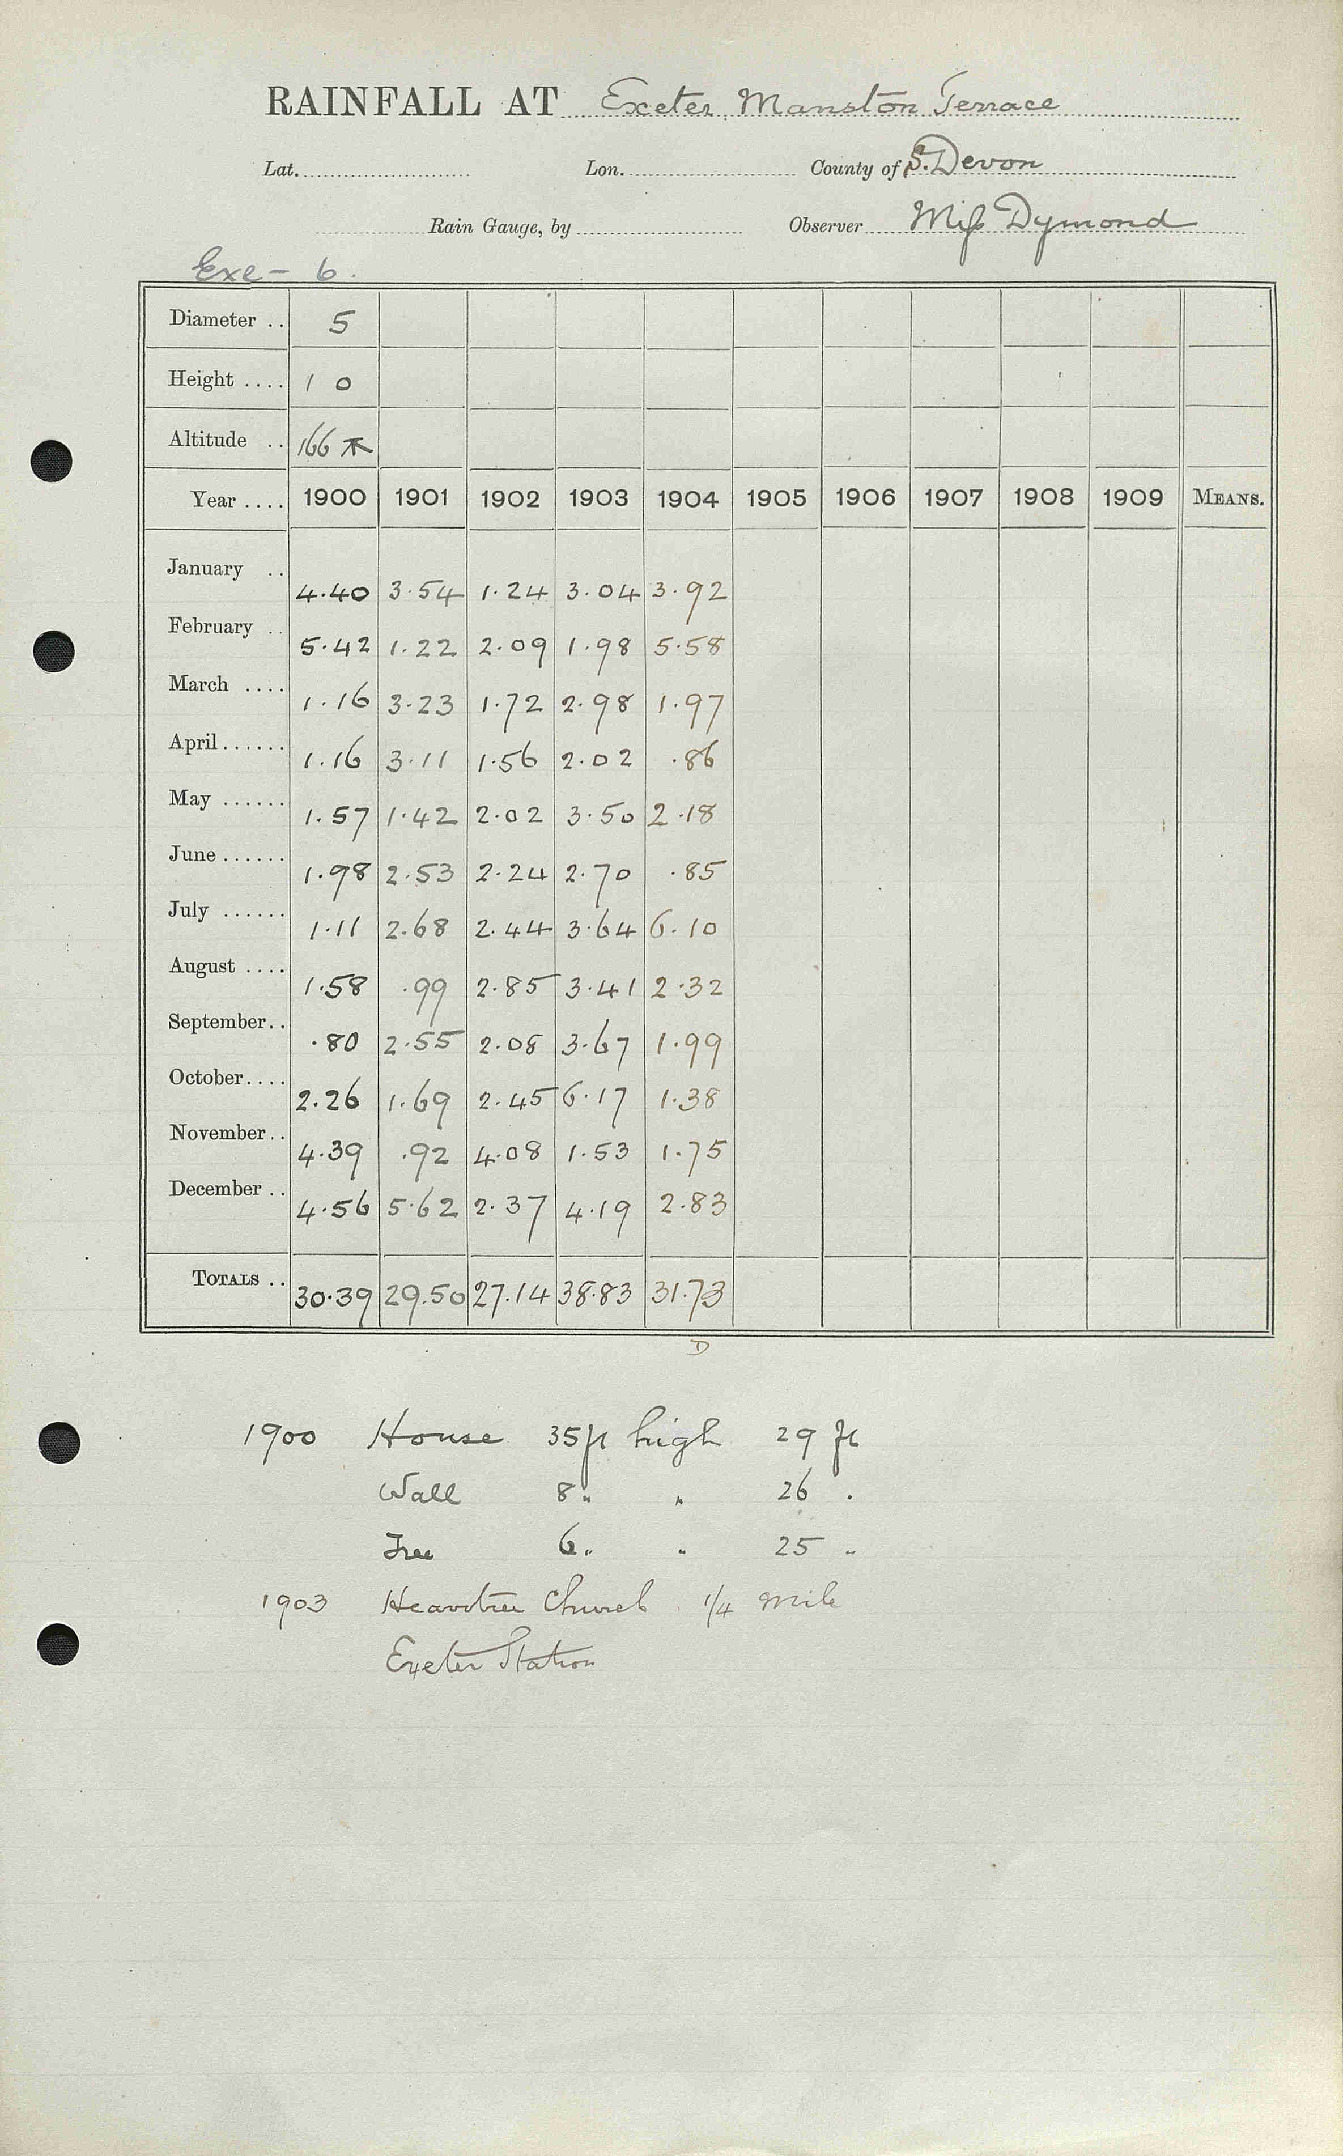 RAINFALL AT Exeter, Manston Terrace
Lat. Lon. County of S. Devon
Rain Gauge, by Observer Miss Dymond
Exe - 6.
Diameter .. 5
Height .... 1 0
Altitude .. 166
Year .... 1900 1901 1902 1903 1904 1905 1906 1907 1908 1909 MEANS.
January .. 4.40 3.54 1.24 3.04 3.92
February .. 5.42 1.22 2.09 1.98 5.58
March .... 1.16 3.23 1.72 2.98 1.97
April...... 1.16 3.11 1.56 2.02 .86
May ...... 1.57 1.42 2.02 3.50 2.18
June...... 1.98 2.53 2.24 2.70 .85
July ...... 1.11 2.68 2.44 3.64 6.10
August .... 1.58 .99 2.85 3.41 2.32
September.. .80 2.55 2.08 3.67 1.99
October.... 2.26 1.69 2.45 6.17 1.38
November.. 4.39 .92 4.08 1.53 1.75
December .. 4.56 5.62 2.37 4.19 2.83
TOTALS .. 30.39 29.50 27.14 38.83 31.73
D
1900 House 35ft high 29 ft
Wall 8 " " 26 "
Tree 6 " " 25 "
1903 Heavitree Church 1/4 mile
Exeter Station